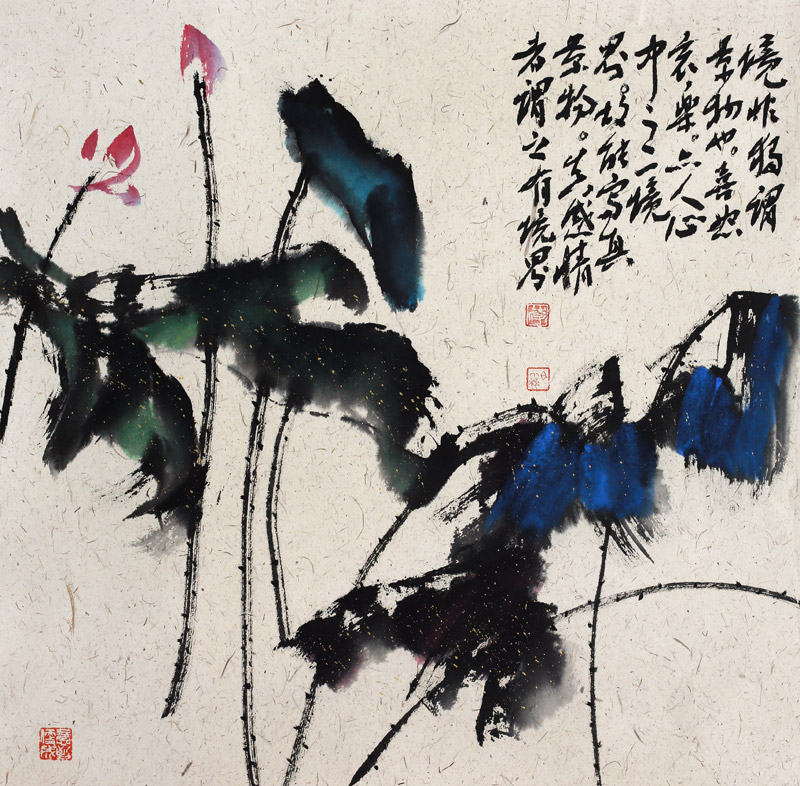 境非獨謂
景物也。喜怒
哀樂。亦人心
中之一境
界。故能寫真
景物。真感情
者謂之有境界